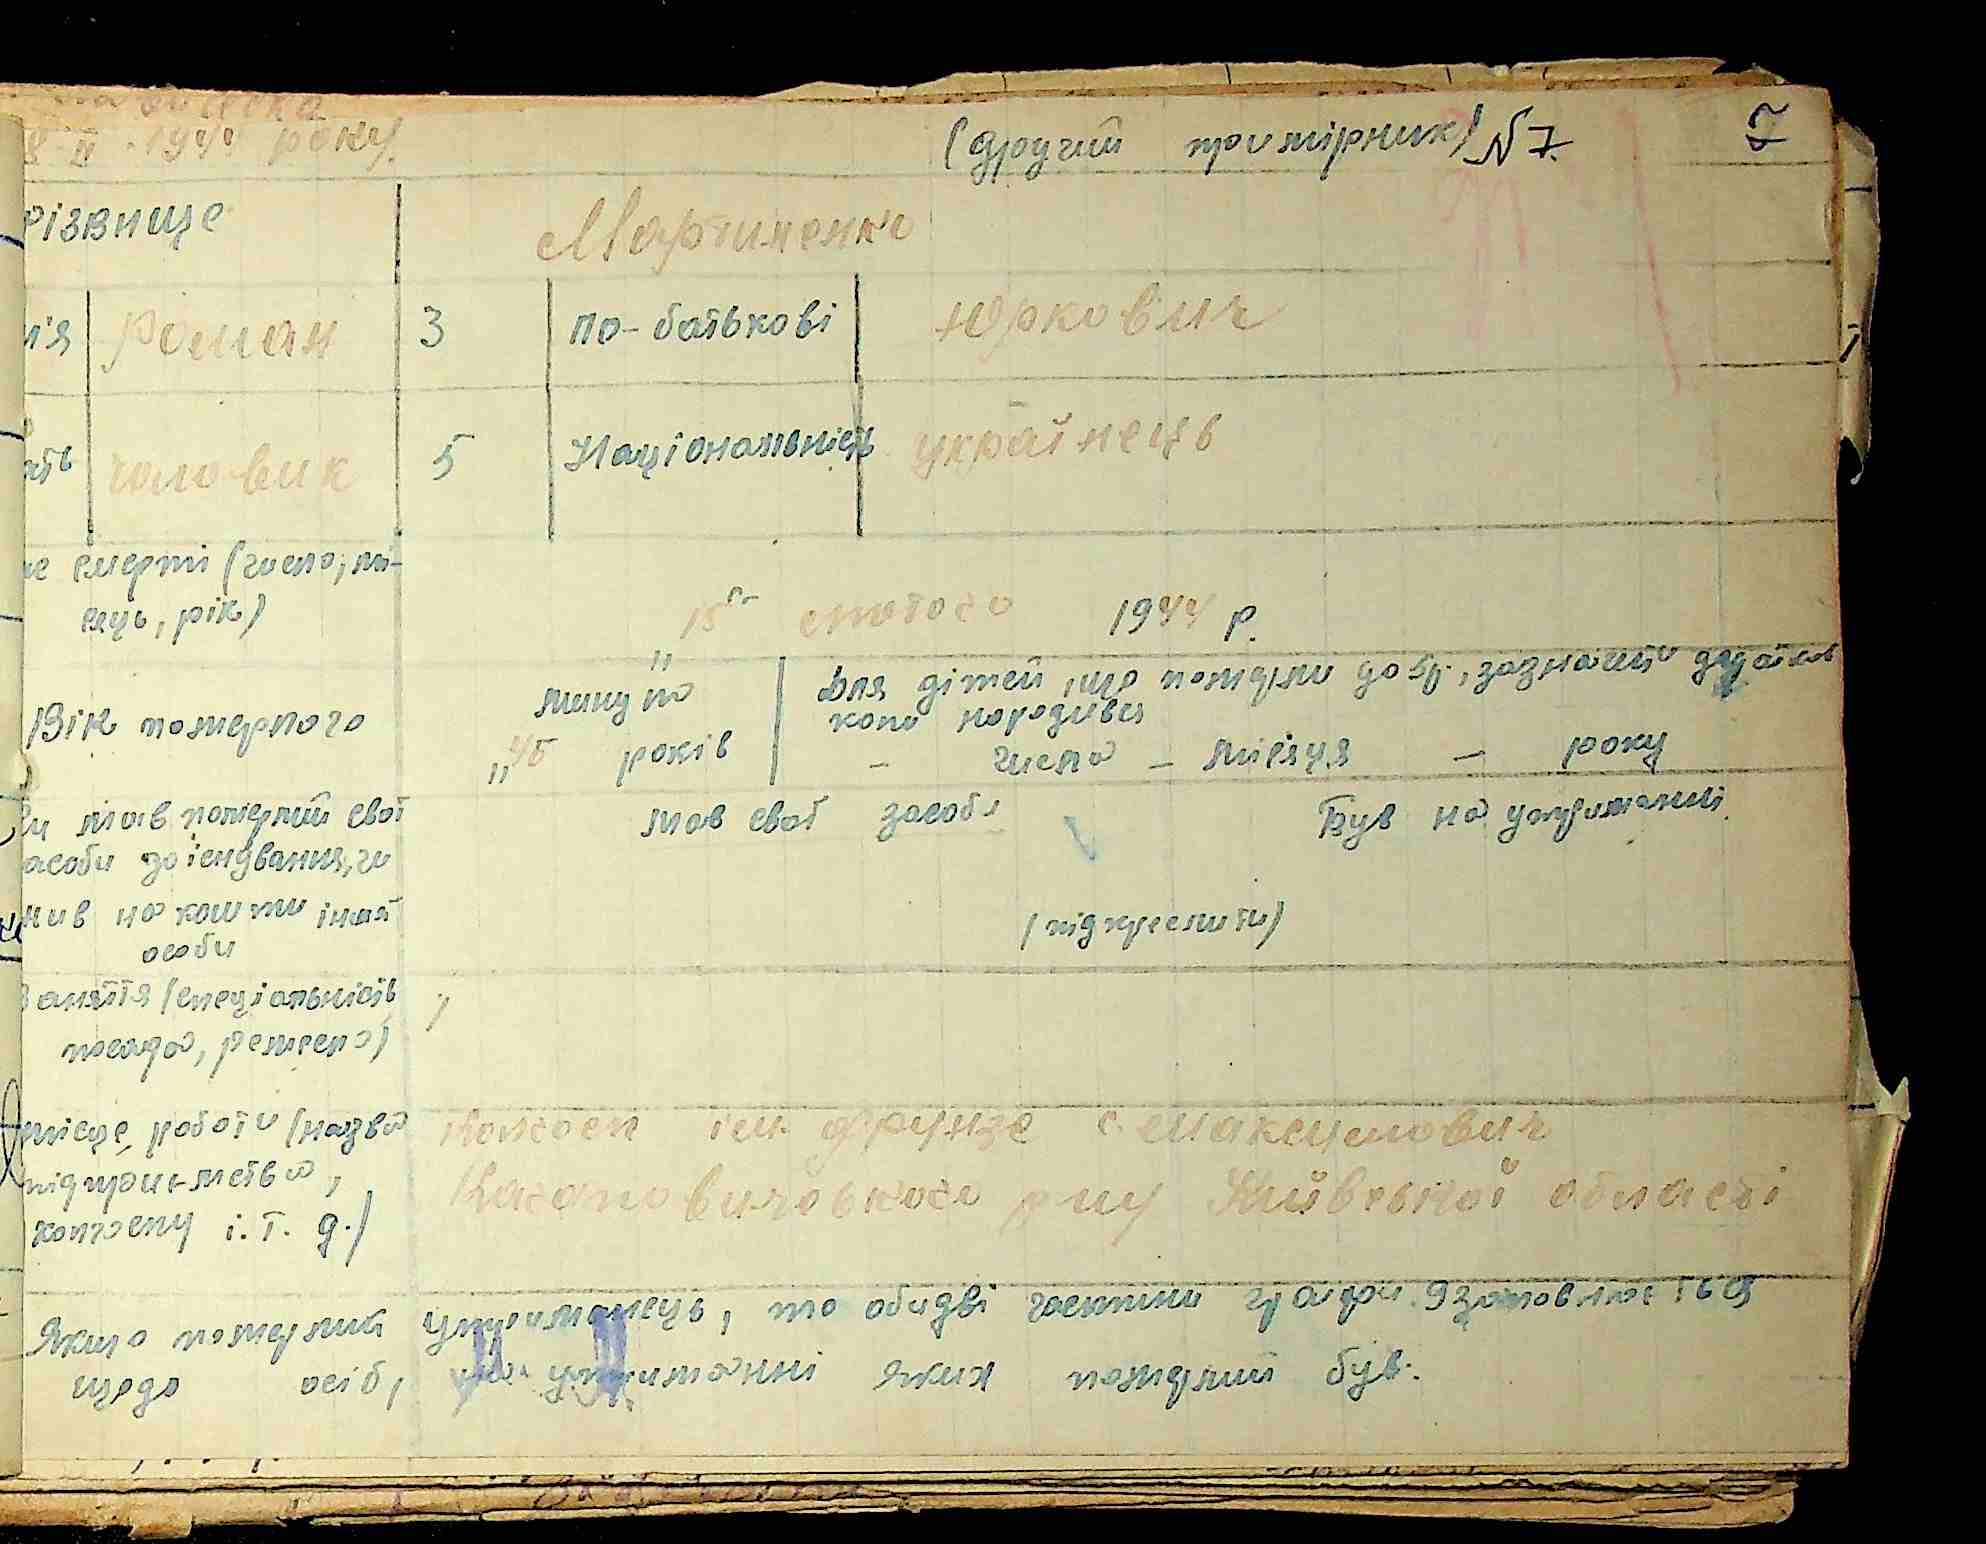 8 II 1944 року.
(другий примірник) N 7. 7
різвище Мартиненко
м'я Роман 3 по-батькові Юркович
ать чоловик 5 Національність українець
не смерті (число, мі-
сяць, рік)
15го лютого 1944 р.
Вік померлого
минуло
"45 років
Для дітей, що померли до 5р., зазначити додатков
коли народився
– числа – місяця – року
Чи мав померлий свої
асоби до існування, чи
жив на кошти іншої
особи
мав свої засоби Був на утриманні
(підкреслити)
Заняття (спеціальність
посада, ремесло)
місце роботи (назва
підприємства,
колгоспу і. т. д.)
Колгосп ім Фрунзе с Максимович
Кагановичовського р-ну Київської області
Якщо померлий утриманець, то обидві частини графи 9 заповнюється
щодо осіб, на утриманні яких померлий був.